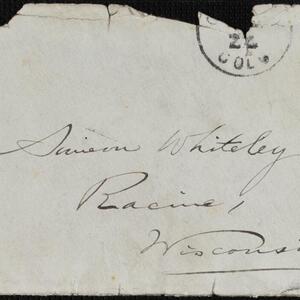 22
COL.
Simeon Whiteley
Racine,
Wisconsi